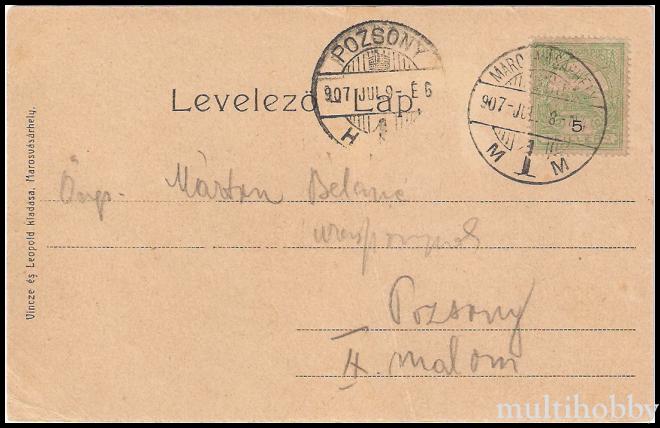 POZSONY
907 JUL 9- É 6
H
MAROSVÁSÁRHELY
907-JUL
M T M
5
Levelező-Lap.
Márton Béláné
Pozsony
malom
Vincze és Leopold kiadása, Marosvásárhely.
multihobby